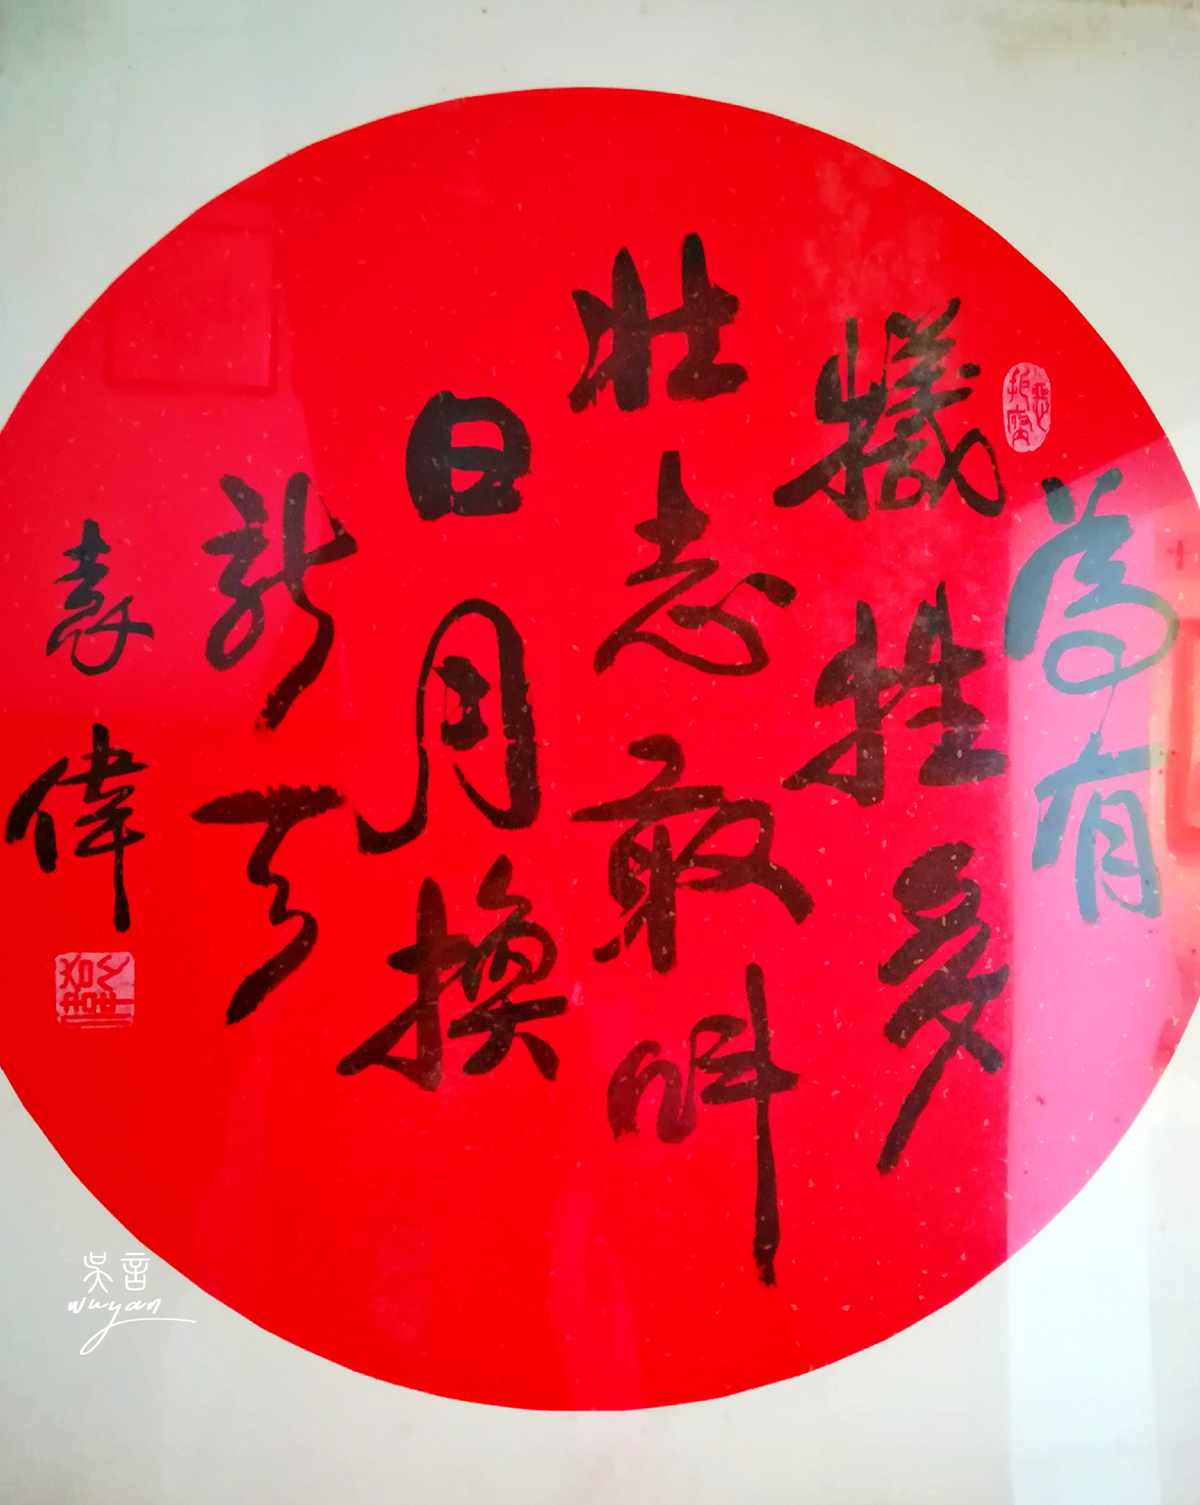 為有
犧牲多
壯志敢叫
日月換
新天
袁偉
吳言
wuyan